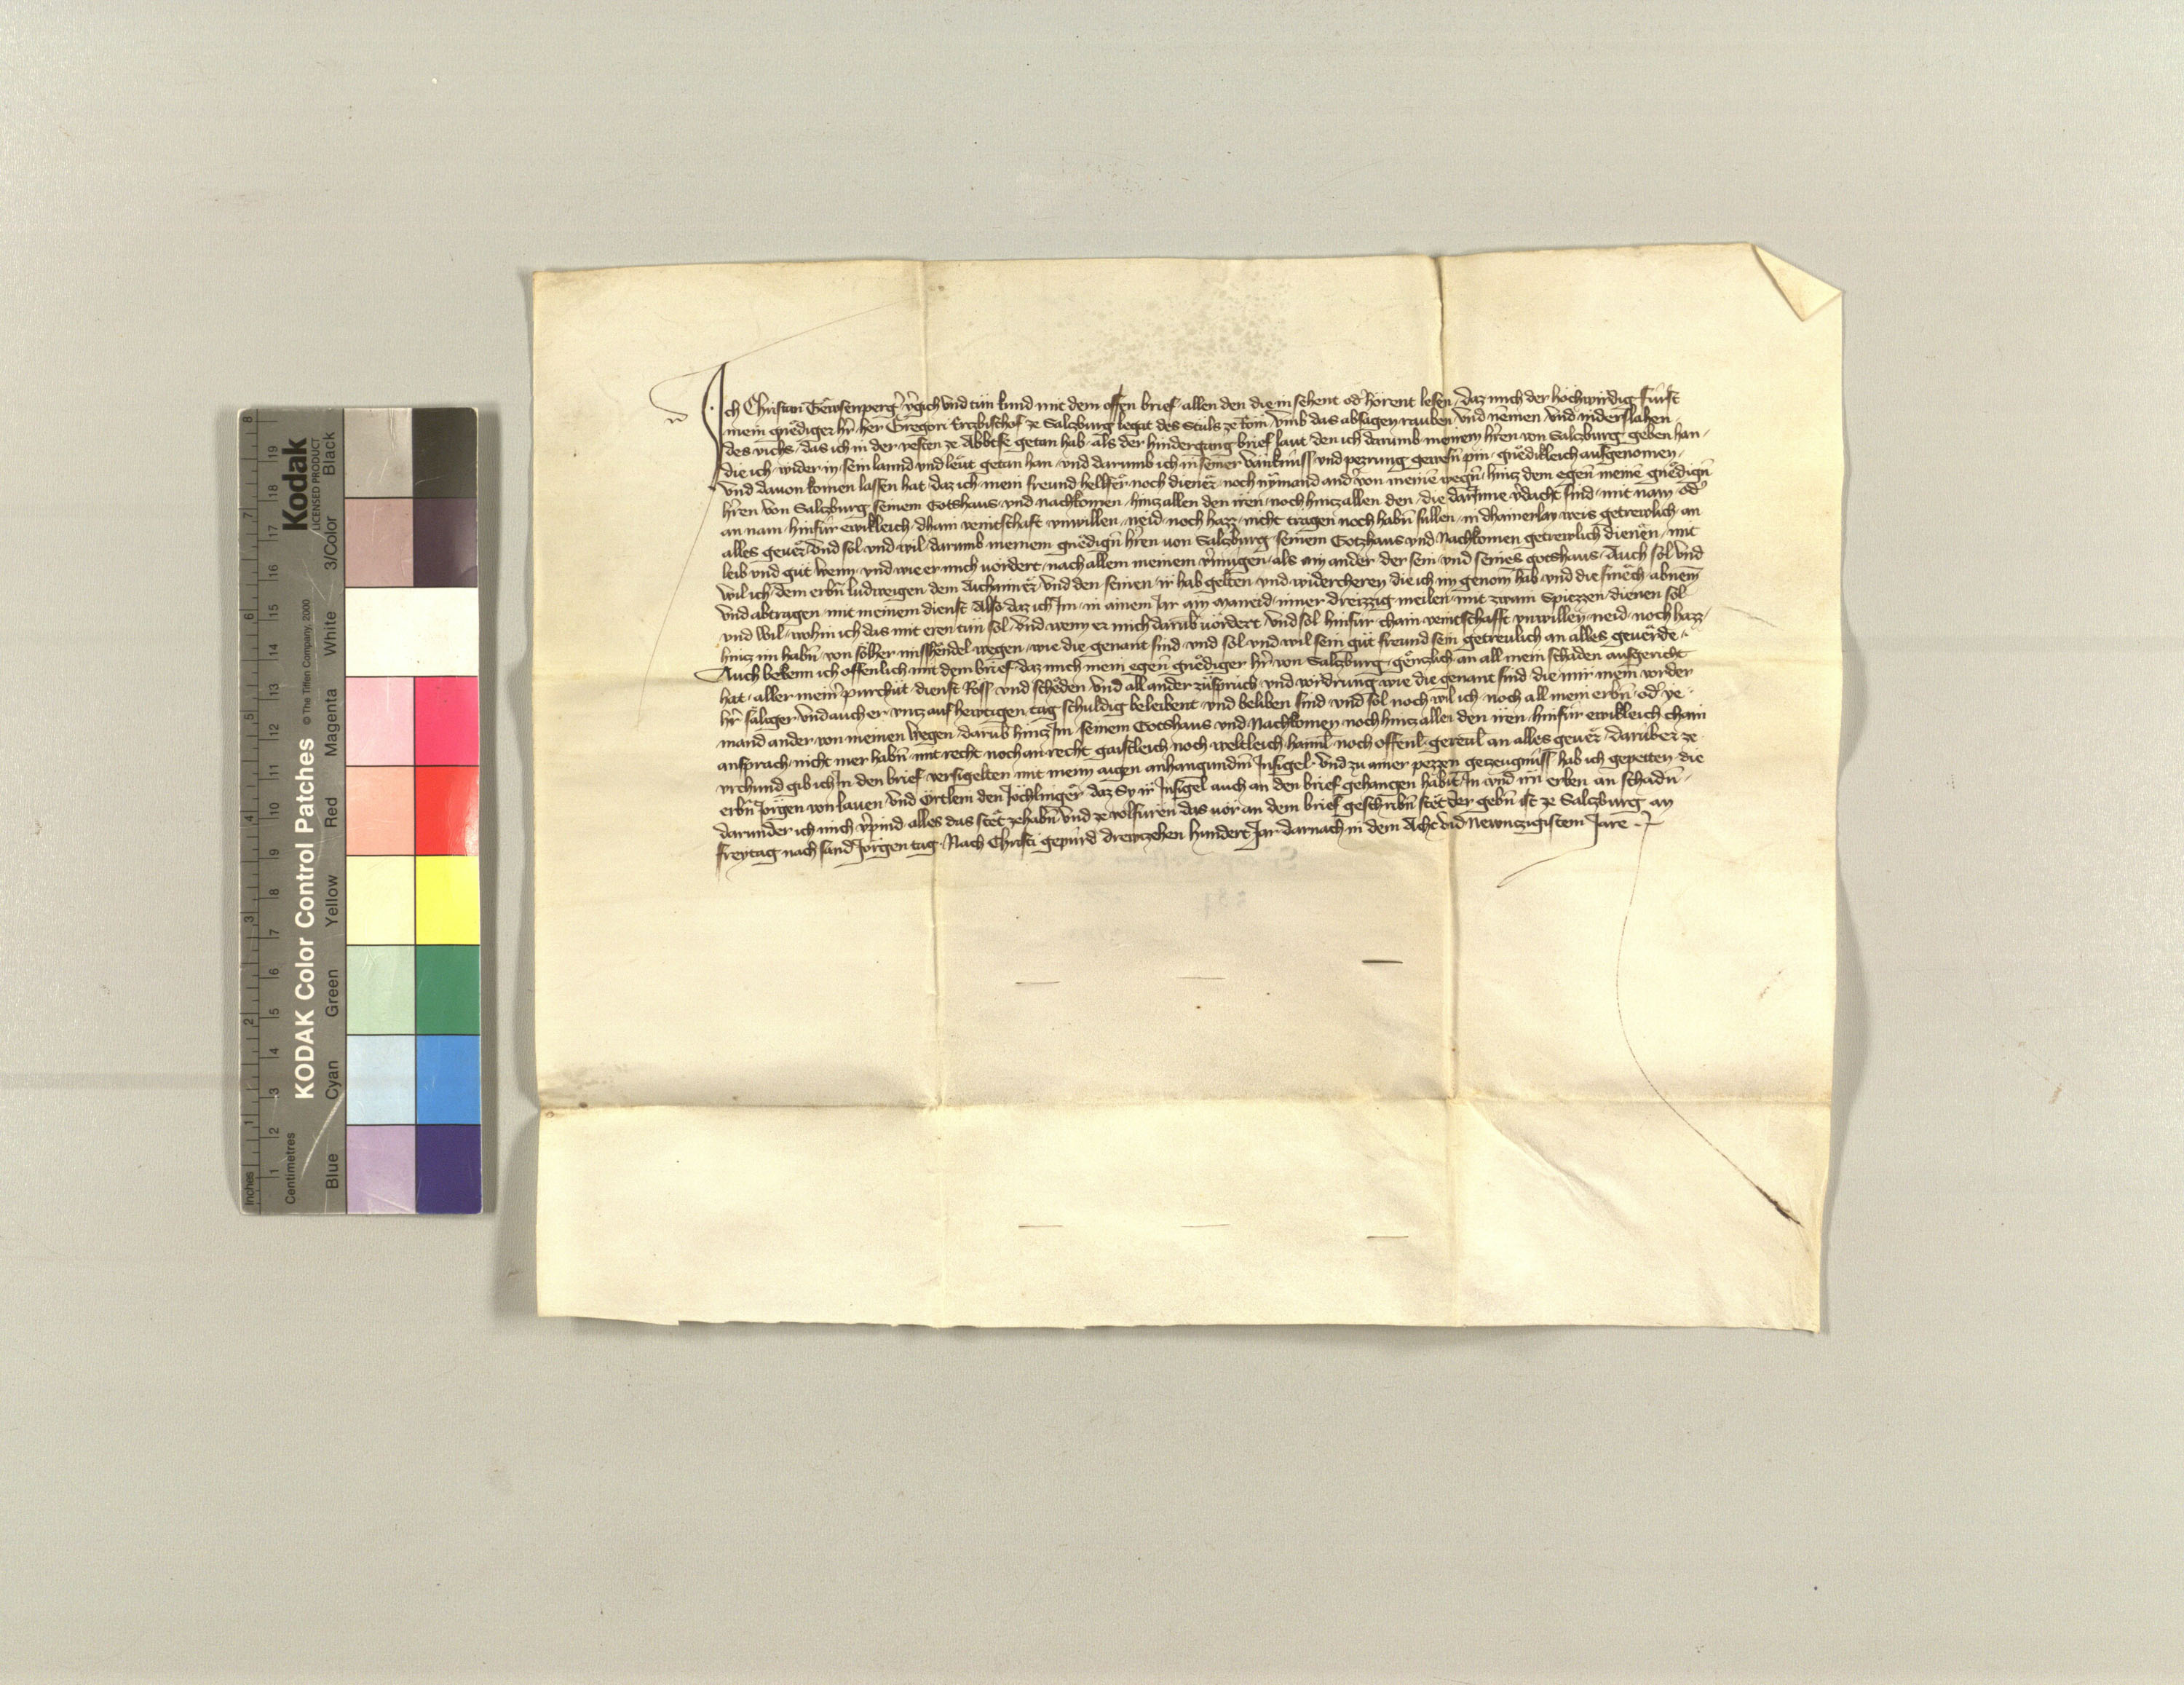 Ich Christan Tewsenperg' v'gich vnd tůn kund mit dem offen brief allen den die in sehent od' hörent lesen, daz mich der hochwirdig fürst
mein gnediger h'r her Gregori Erzbischof ze Salzburg legat des Stuls ze Rom, vmb das absagen rauben vnd nemen vnd niderslahen
des vichs, das ich in der vesten ze Abbtse getan hab, als der hindergang brief laut den ich darumb meinem h'ren von Salzburg geben han,
die ich wider in sein lannd vnd leüt getan han, vnd darumb ich in seiner vänknüss vnd pezrung gewesn pin, gnedikleich aufgenomen,
vnd dauon komen lassen hat, daz ich mein freund helffer noch diener noch nymand and' von meine wegn, hincz dem egen meine gnedign
h'ren von Salzburg seinem Gotshaus vnd nachkomen, hincz allen den iren, noch hincz allen den, die darinne v'dacht sind, mit nam od'
an nam, hinfür ewikleich, dhain veintschaft vnwillen, neid noch hazz, nicht tragen noch habn sullen, in dhainerlay weis getrewlich an
alles geuer, vnd sol vnd wil darumb meinem gnedign h'ren von Salzburg, seinem Gotzhaus vnd Nachkomen getrewlich dienen, mit
leib vnd gůt wenn, vnd wie er mich vordert, nach allem meinem v'mugen, als ain ander der sein vnd seines gotshaus, Auch sol vnd
wil ich dem erbn ludweigen dem Aichaimer, vnd den seinen ir hab gelten vnd widercheren die ich im genom hab vnd die smech abnem
vnd abtragen mit meinem dienst Also daz ich Im in ainem Jar ain maneid inner dreizzig meilen mit zwain Spiezzen dienen sol
vnd wil, wohin ich das mit eren tůn sol, vnd wenn er mich darub vordert vnd sol hinfür chain veintschafft vnwillen neid noch hazz,
hincz im habn von solher misshendel wegen, wie die genant sind, vnd sol vnd wil sein gůt freund sein getreulich an alles geuerde
Auch bekenn ich offenlich mit dem brief, daz mich mein egen gnediger h'r von Salzburg, genczlich an all mein schaden ausgericht
hat, aller mein' purchůt, dienst Ross vnd scheden vnd all ander zůspruch vnd vordrung wie die genant sind, die mir mein vorder
h'r saliger vnd auch er vncz auf hewtigen tag schuldig beleibent vnd beliben sind, vnd sol noch wil ich noch all mein erbn, od' ye
mand ander von meinen wegen darub hincz Im seinem Gotshaus vnd Nachkomen noch hincz allen den iren hinfür ewikleich chain
ansprach nicht mer habn, mit recht noch an recht gaistleich noch weltleich, haiml noch offenl, getreul an alles geuer, darüber ze
vrchund gib ich In den brief versigelten mit meim aigen anhangundm Insigel, Vnd zu ainer pezzen gezeugnüss hab ich gepetten die
erbn Jörgen von lauen vnd Örtlein den Jochlinger, daz Sy ir Insigel auch an den brief gehangen habnt, In vnd irn erben an schadn
darunder ich mich v'pind alles das stet ze habn vnd ze volfüren das vor an dem brief geschribn stet der gebn ist ze Salczburg an
freytag nach sand Jörgen tag Nach Christi gepürd drewzehen hundert Jar darnach in dem Acht vnd Newnczigistem Jare
KODAK Color Control Patches
© The Tiffen Company, 2000
Kodak
LICENSED PRODUCT
Inches
Centimetres
Blue Cyan Green Yellow Red Magenta White 3/Color Black